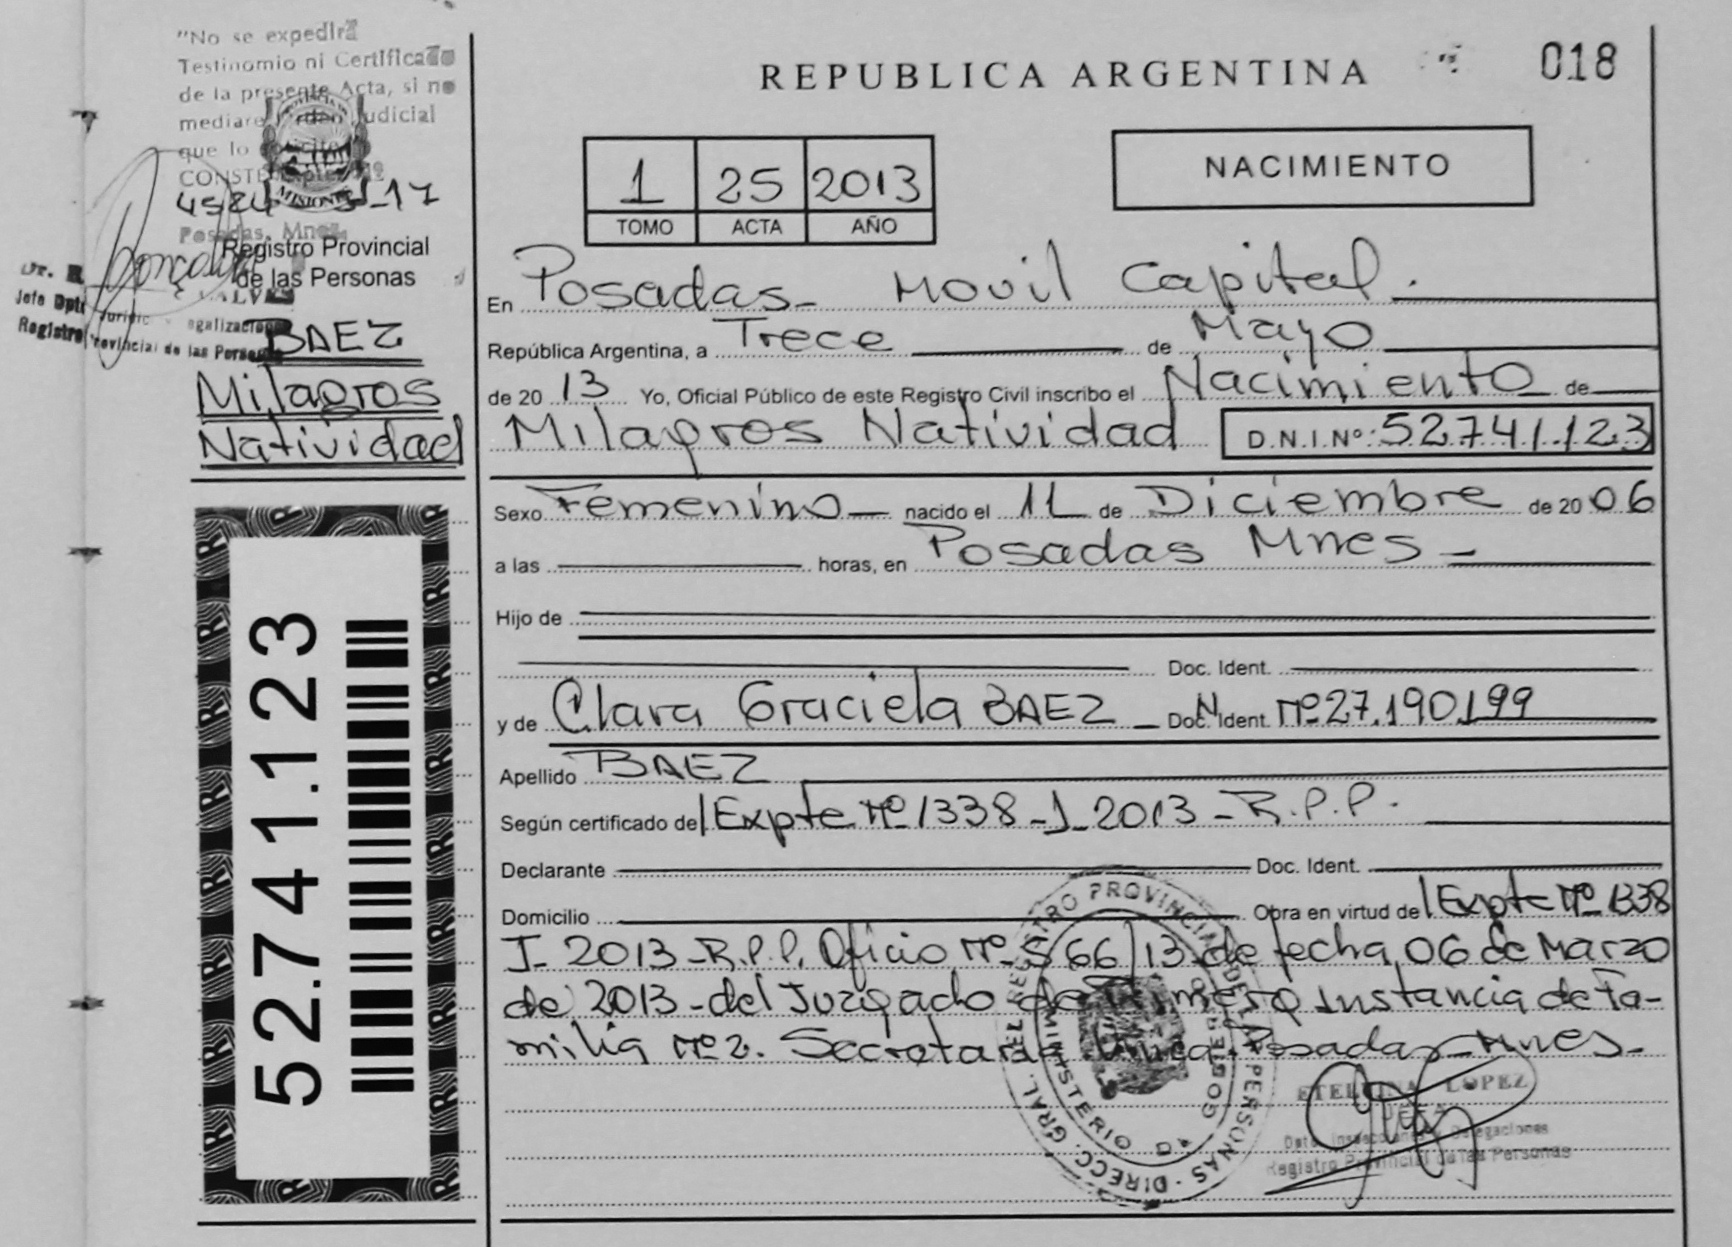 "No se expedirá
Testinomio ni Certificado
de la presente Acta, si no
mediare Orden Judicial
que lo
4524 17
Posadas, Mnes.
MISIONES
Registro Provincial
de las Personas
Registro Provincial de las Personas
BAEZ
Milagros
Natividad
52.741.123
REPUBLICA ARGENTINA
018
1 25 2013
TOMO ACTA AÑO
NACIMIENTO
En Posadas - Movil Capital.
República Argentina, a Trece de Mayo
de 20 13 Yo, Oficial Público de este Registro Civil inscribo el Nacimiento de
Milagros Natividad D.N.I.Nº: 52.741.123
Sexo Femenino nacido el 11 de Diciembre de 20 06
a las horas, en Posadas Mnes -
Hijo de
Doc. Ident.
y de Clara Graciela BAEZ - Doc. Ident. Nº 27.190.199
Apellido BAEZ
Según certificado de Expte Nº 1338 - J - 2013 - R.P.P.
Declarante Doc. Ident.
Domicilio Obra en virtud de Expte Nº 1338
J - 2013 - R.P.P. Oficio Nº 566/13 de fecha 06 de Marzo
de 2013 - del Juzgado de Primera Instancia de Fa-
milia Nº 2. Secretaria Unica Posadas - Mnes -
LOPEZ
JEFA
Registro Provincial de las Personas
REGISTRO PROVINCIAL DE LAS PERSONAS - DIRECC. GRAL. DEL
MINISTERIO DE GOBIERNO